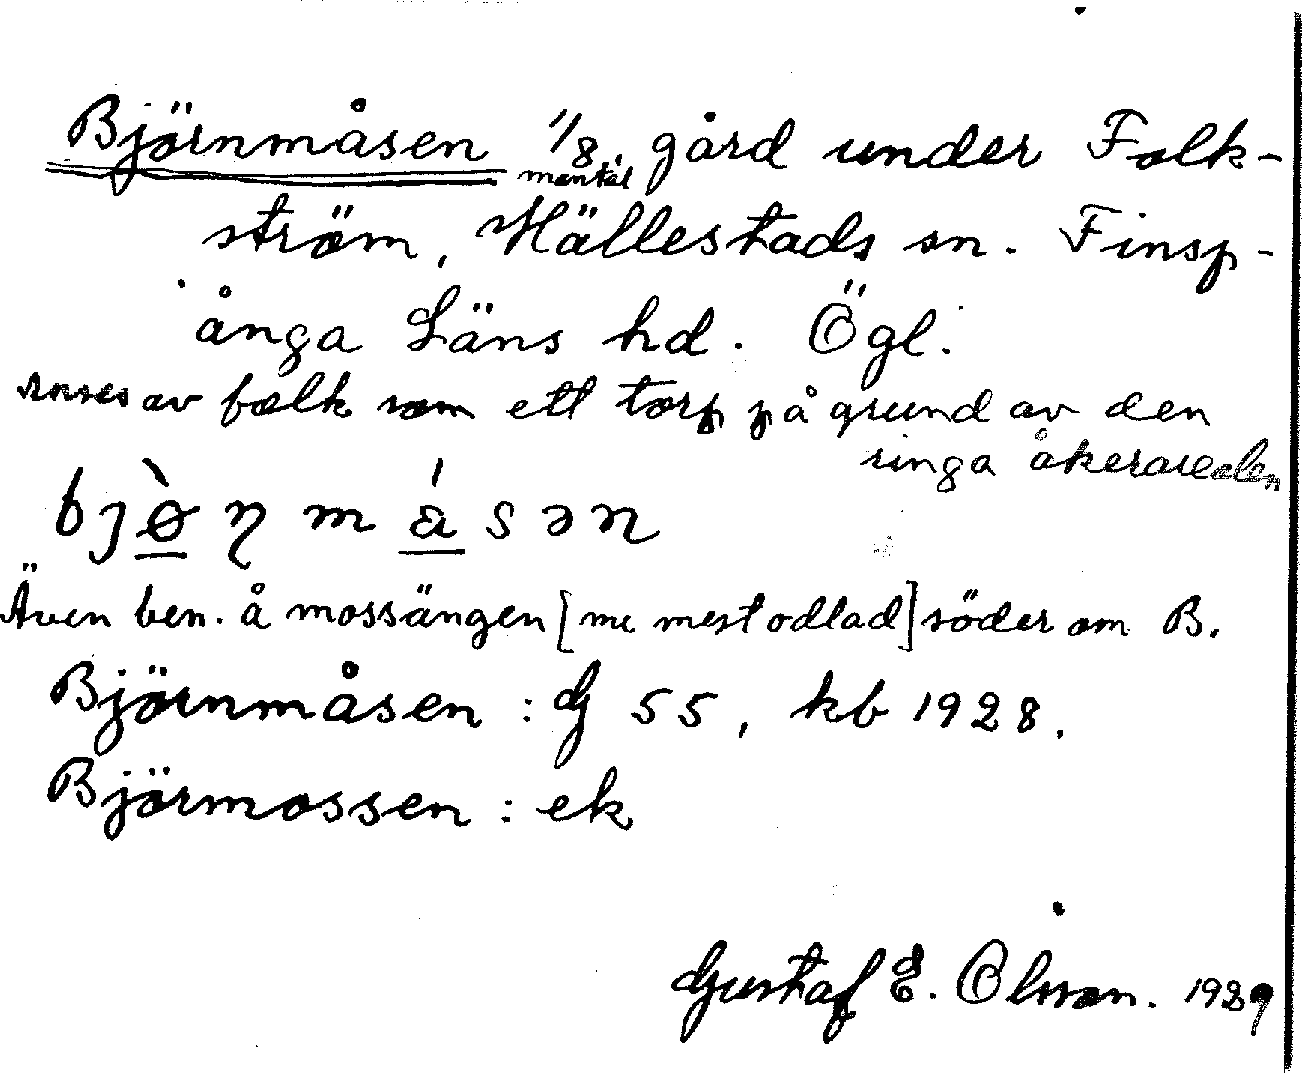 Björnmåsen 1/8 mantal gård under Folk-
ström, Hällestads sn. Finsp-
ånga Läns hd. Ögl.
Anses av folk som ett torp på grund av den
ringa åkerarealen
bjö̀ɳmåsən
Även ben. å mossängen [nu mest odlad] söder om B.
Björnmåsen : G 55, kb 1928.
Björmossen : ek
Gustaf E. Olsson. 1929